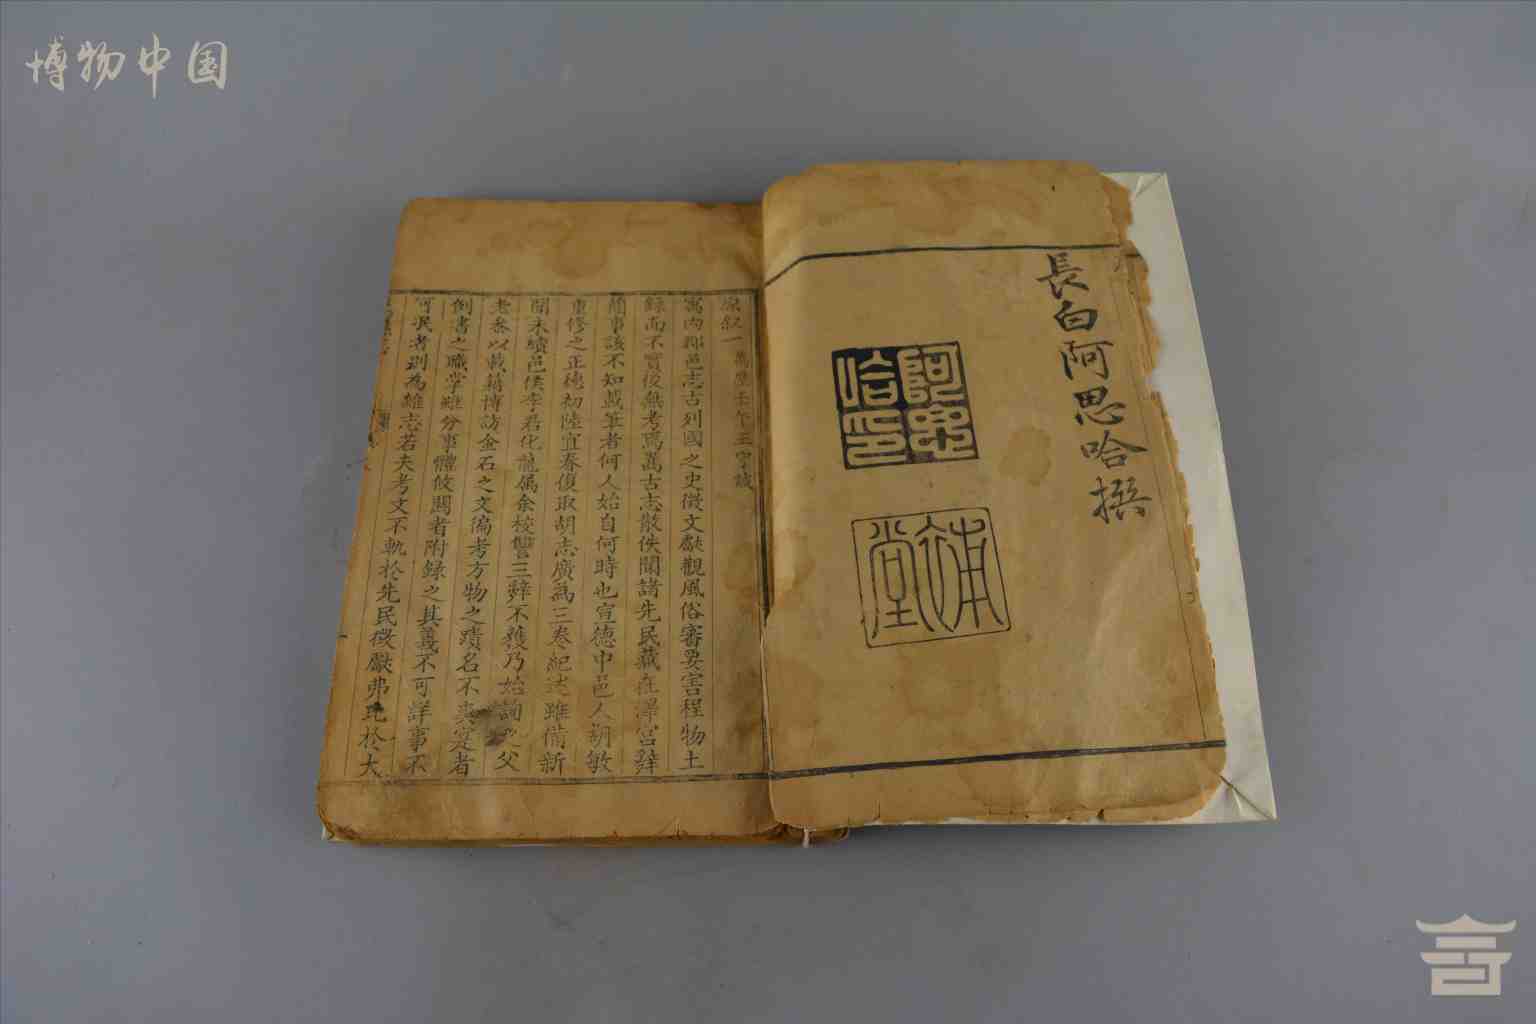 博物中国
長白阿思哈撰
阿思哈印
補堂
原叙一 萬曆壬午王宇誠
寓内郡邑志古列國之史徵文獻觀風俗審要害程物土
録而不實後無考焉萬古志散佚聞諸先民藏在澤宮辥
簡事該不知載筆者何人始自何時也宣德中邑人胡敏
重修之正德初陸宜春復取胡志廣為三卷紀述雖備新
聞未續邑侯李君化龍属余校讐三辤不獲乃始詢之父
老参以載籍博訪金石之文徧考方物之蹟名不爽寔者
倒書之職掌雖分事體攸關者附録之其義不可詳事不
可泯者列為雜志若夫考文不軌於先民徵獻弗
於大